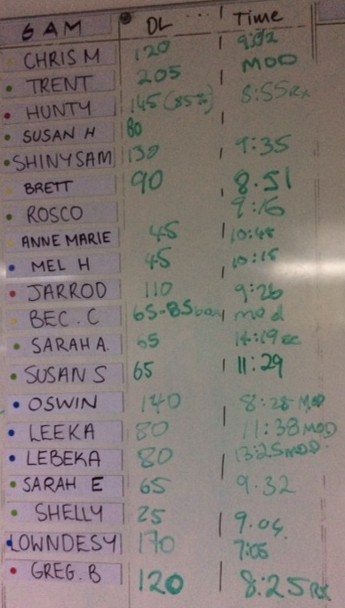 6 AM DL Time
CHRIS M 120 9:02
TRENT 205 MOD
HUNTY 145 (85%) 8:55 Rx
SUSAN H 80
SHINYSAM 130 9:35
BRETT 90 8.51
ROSCO 9:16
ANNE MARIE 45 10:48
MEL H 45 10:15
JARROD 110 9:26
BEC. C 65-85 mod
SARAH A. 65
SUSAN S 65 11:29
OSWIN 140 8:28 MOD
LEEKA 80 11:38 MOD
LEBEKA 80 13:25 MOD
SARAH E 65 9.32
SHELLY 25 9.04
LOWNDESY 170 7:05
GREG. B 120 8:25 Rx